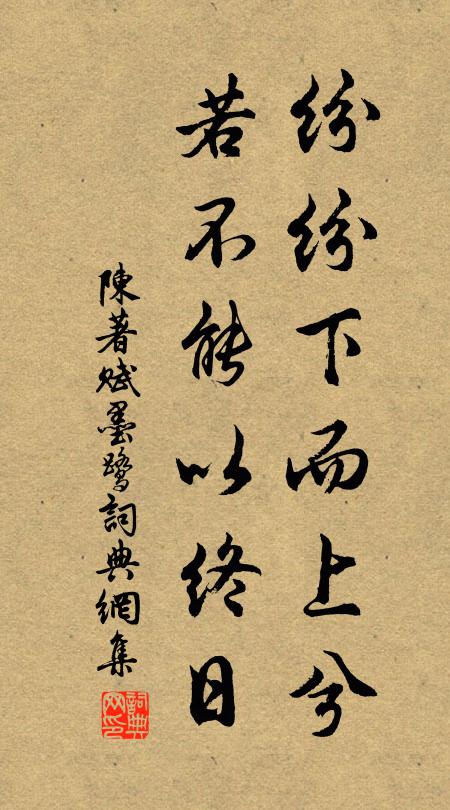 纷纷下而上兮
若不能以终日
陳著賦墨鷺詞典網集
詞典網印